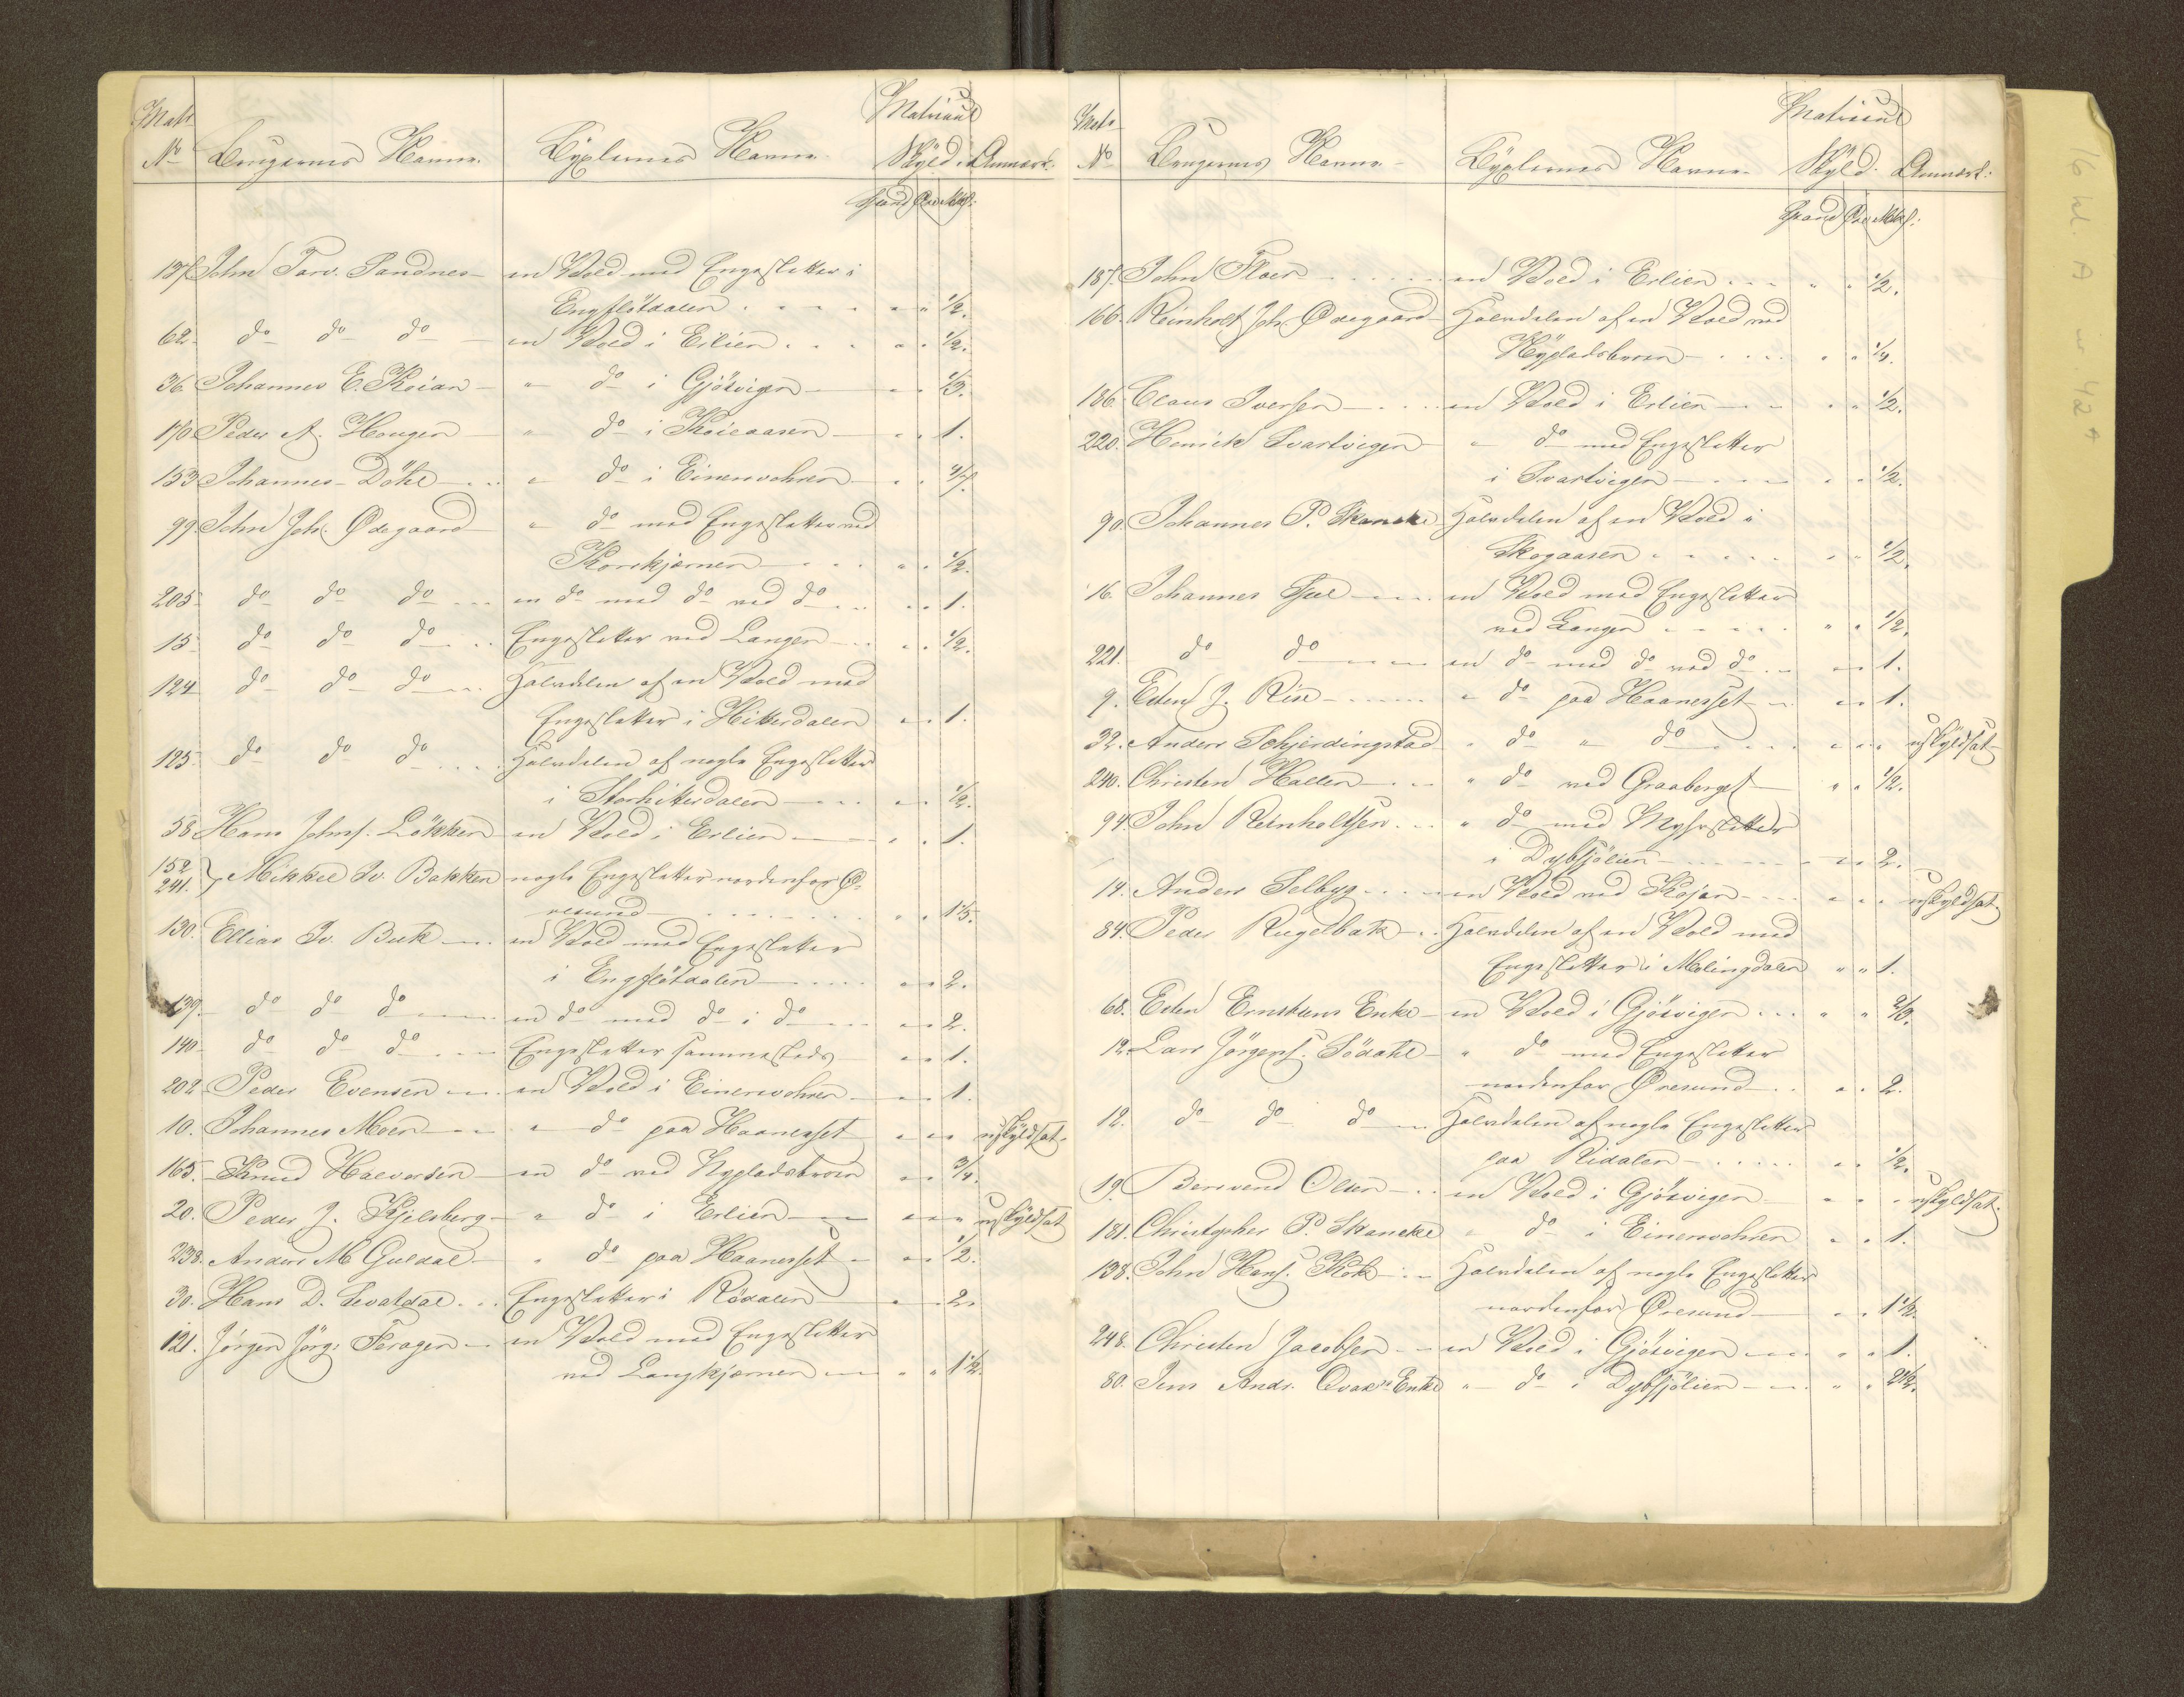 Matr
No Brugernes Navne. Lyxlernes Navne. Matricul Skyld. Anmærk.
Spand Øre Mkl:
137. John Tarv. Sandnes en Vold med Engesletter i
Engfløtdalen " " 1/2.
62. do do do en Vold i Erlien " " 1/2.
36. Johannes E. Koian " do i Gjösvigen " " 1/3.
170 Peder A. Haugen " do i Koieaasen " " 1.
153 Johannes Döhl " do i Einervohren " " 4/7.
99. John Joh. Ødegaard " do med Engesletter ved
Korskjernen " " 1/2.
205 do do do en do med do ved do " " 1.
15 do do do Engesletter ved Langen " " 1/2.
124 do do do Halvdelen af en Vold med
Engesletter i Hitterdalen " " 1.
125 do do do Halvdelen af nogle Engesletter
i Storhitterdalen " " 1/2.
58 Hans Johns. Lökken en Vold i Erlien " " 1.
152
241. } Mikkel Iv. Bakken nogle Engesletter nordenfor Ø-
resund " " 1 1/5.
130. Ellias Iv. Buk en Vold med Engesletter
i Engfløtdalen " " 2.
139. do do do en do med do i do " " 2.
140 do do do Engesletter sammesteds " " 1.
202 Peder Evensen en Vold i Einervohren " " 1.
10. Johannes Moen " do paa Haanesset " " " uskyldsat.
165. Knud Halvorsen en do ved Nypladsbroen " " 3/4.
20. Peder J. Kjelsberg " do i Erlien " " " uskyldsat
238. Anders M. Guldal " do paa Haanesset " " 1/2.
30. Hans D. Evaldal Engesletter i Rödalen " " 2.
121. Jörgen Jörg. Feragen en Vold med Engesletter
ved Langkjernen " " 1 1/2.
Matr
No Brugernes Navne. Lyxlernes Navne. Matricul Skyld. Anmærk:
Spand Øre Mkl:
187. John Floen en Vold i Erlien " " 1/2.
166. Reinholt Joh. Ødegaard Halvdelen af en Vold ved
Nypladsbroen " " 1/4.
186. Claus Iversen en Vold i Erlien " " 1/2.
220. Henrik Svartvigen " do med Engesletter
i Svartvigen " " 1/2.
90. Johannes P. Skancke Halvdelen af en Vold i
Skogaasen " " 1/2.
16. Johannes Juel en Vold med Engesletter
ved Langen " " 1/2.
221. do do en do med do ved do " " 1.
9. Esten J. Rise " do paa Haanesset " " 1.
32. Anders Schjerdingstad " do " do " " " uskyldsat
240. Christen Hallen " do ved Graaberget " " 1/2.
94. John Reinholtsen " do med Myhrsletter
i Dybsjölien " " 2.
14. Anders Selbyg en Vold ved Kojan " " " uskyldsat.
84. Peder Rugelbak Halvdelen af en Vold med
Engesletter i Molingdalen " " 1.
68. Esten Ernstens Enke en Vold i Gjösvigen " " 2/3.
12. Lars Jörgens. Södahl " do med Engesletter
nordenfor Øresund " " 2.
12. do do do Halvdelen af nogle Engesletter
paa Ridalen " " 1/2.
19. Berevend Olsen en Vold i Gjösvigen " " " uskyldsat.
181. Christopher P. Skancke " do i Einervohren " " 1.
138. John Hans. Kok Halvdelen af nogle Engesletter
nordenfor Øresund " " 1 1/2.
248. Christen Jacobsen en Vold i Gjösvigen " " 1.
80. Jens Ands. Enke " do i Dybsjölien " " 2 1/2.
16 kl. A nr 42 a